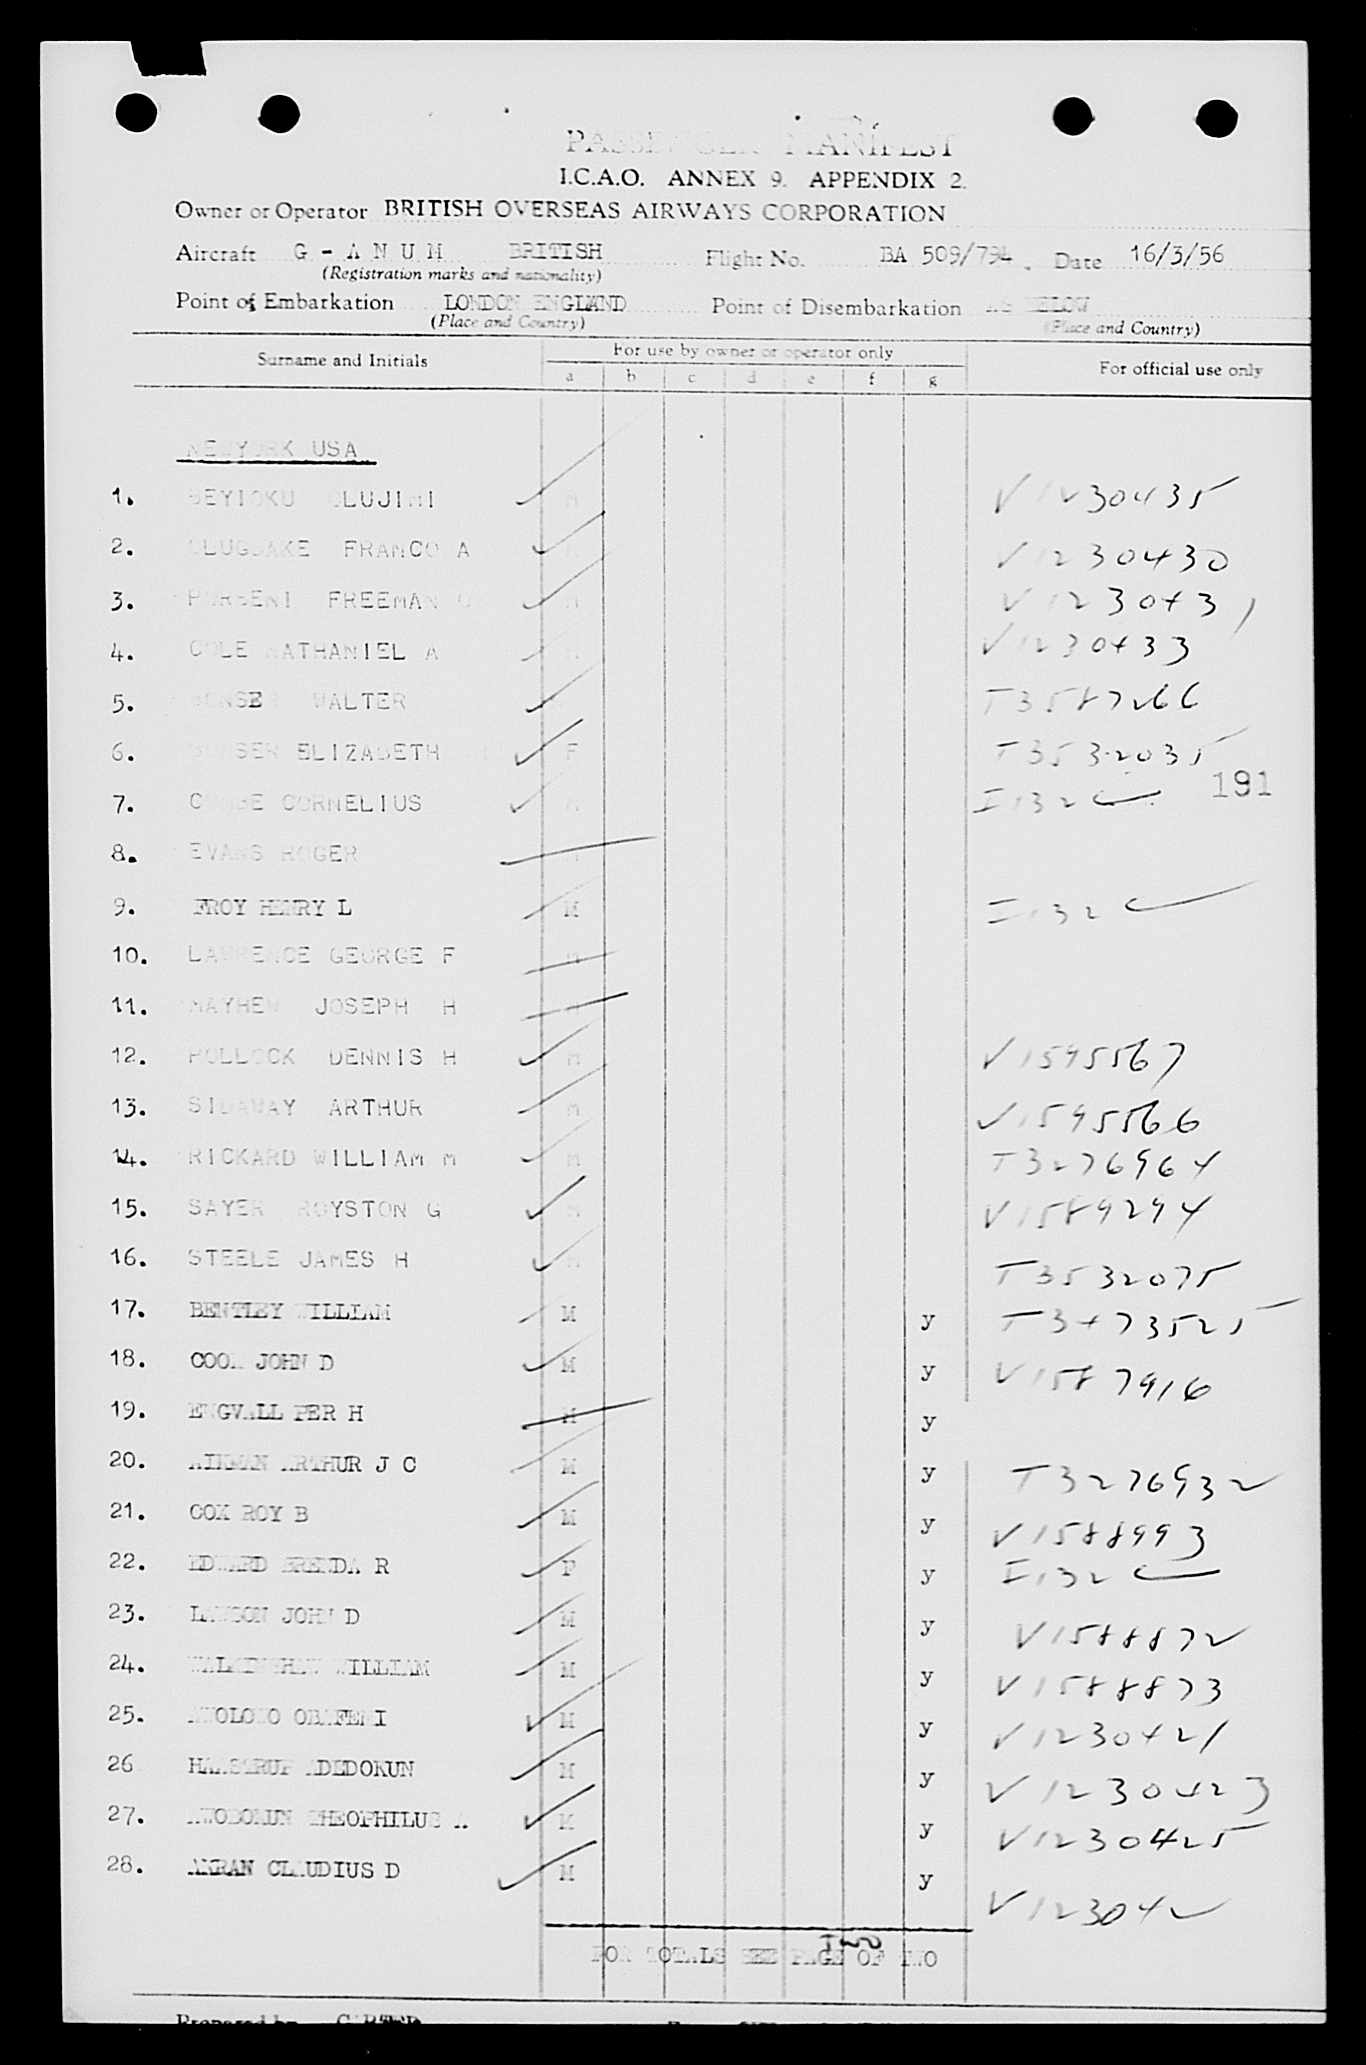 PASSENGER MANIFEST
I.C.A.O. ANNEX 9. APPENDIX 2.
Owner or Operator BRITISH OVERSEAS AIRWAYS CORPORATION
Aircraft G - A N U M BRITISH Flight No. BA 509/794 . Date 16/3/56
(Registration marks and nationality)
Point of Embarkation LONDON ENGLAND Point of Disembarkation AS BELOW
(Place and Country) (Place and Country)
Surname and Initials For use by owner or operator only For official use only
a b c d e f g
NEWYORK USA
1. BEYIOKU OLUJIMI M V1230435
2. FRANCO A V1230430
3. FREEMAN M V1230431
4. COLE NATHANIEL A V1230433
5. WALTER T3587266
6. ELIZABETH F T3532035
191
7. CORNELIUS M I 132 C
8. EVANS ROGER
9. FROY HENRY L M I 132 C
10. LAWRENCE GEORGE F M
11. MAYHEW JOSEPH H
12. POLLOCK DENNIS H M V1595567
13. SIDAWAY ARTHUR M V1595566
14. RICKARD WILLIAM M M T3276964
15. SAYER ROYSTON G M V1589294
16. STEELE JAMES H T3532075
17. BENTLEY WILLIAM M y T3473525
18. COOK JOHN D M y V1587916
19. ENGVALL PER H M y
20. AIKMAN ARTHUR J C M y T3276932
21. COX ROY B M y V1588993
22. EDWARD BRENDA R F y I 132 C
23. LAWSON JOHN D M y V1588872
24. WILLIAM M y V1588873
25. AWOLOWO OBAFEMI M y V1230421
26 ADEDOKUN M y V1230423
27. THEOPHILUS A. M y V1230425
28. AKRAN CLAUDIUS D M y V123042
FOR TOTALS SEE PAGE OF TWO
Prepared by CARTER